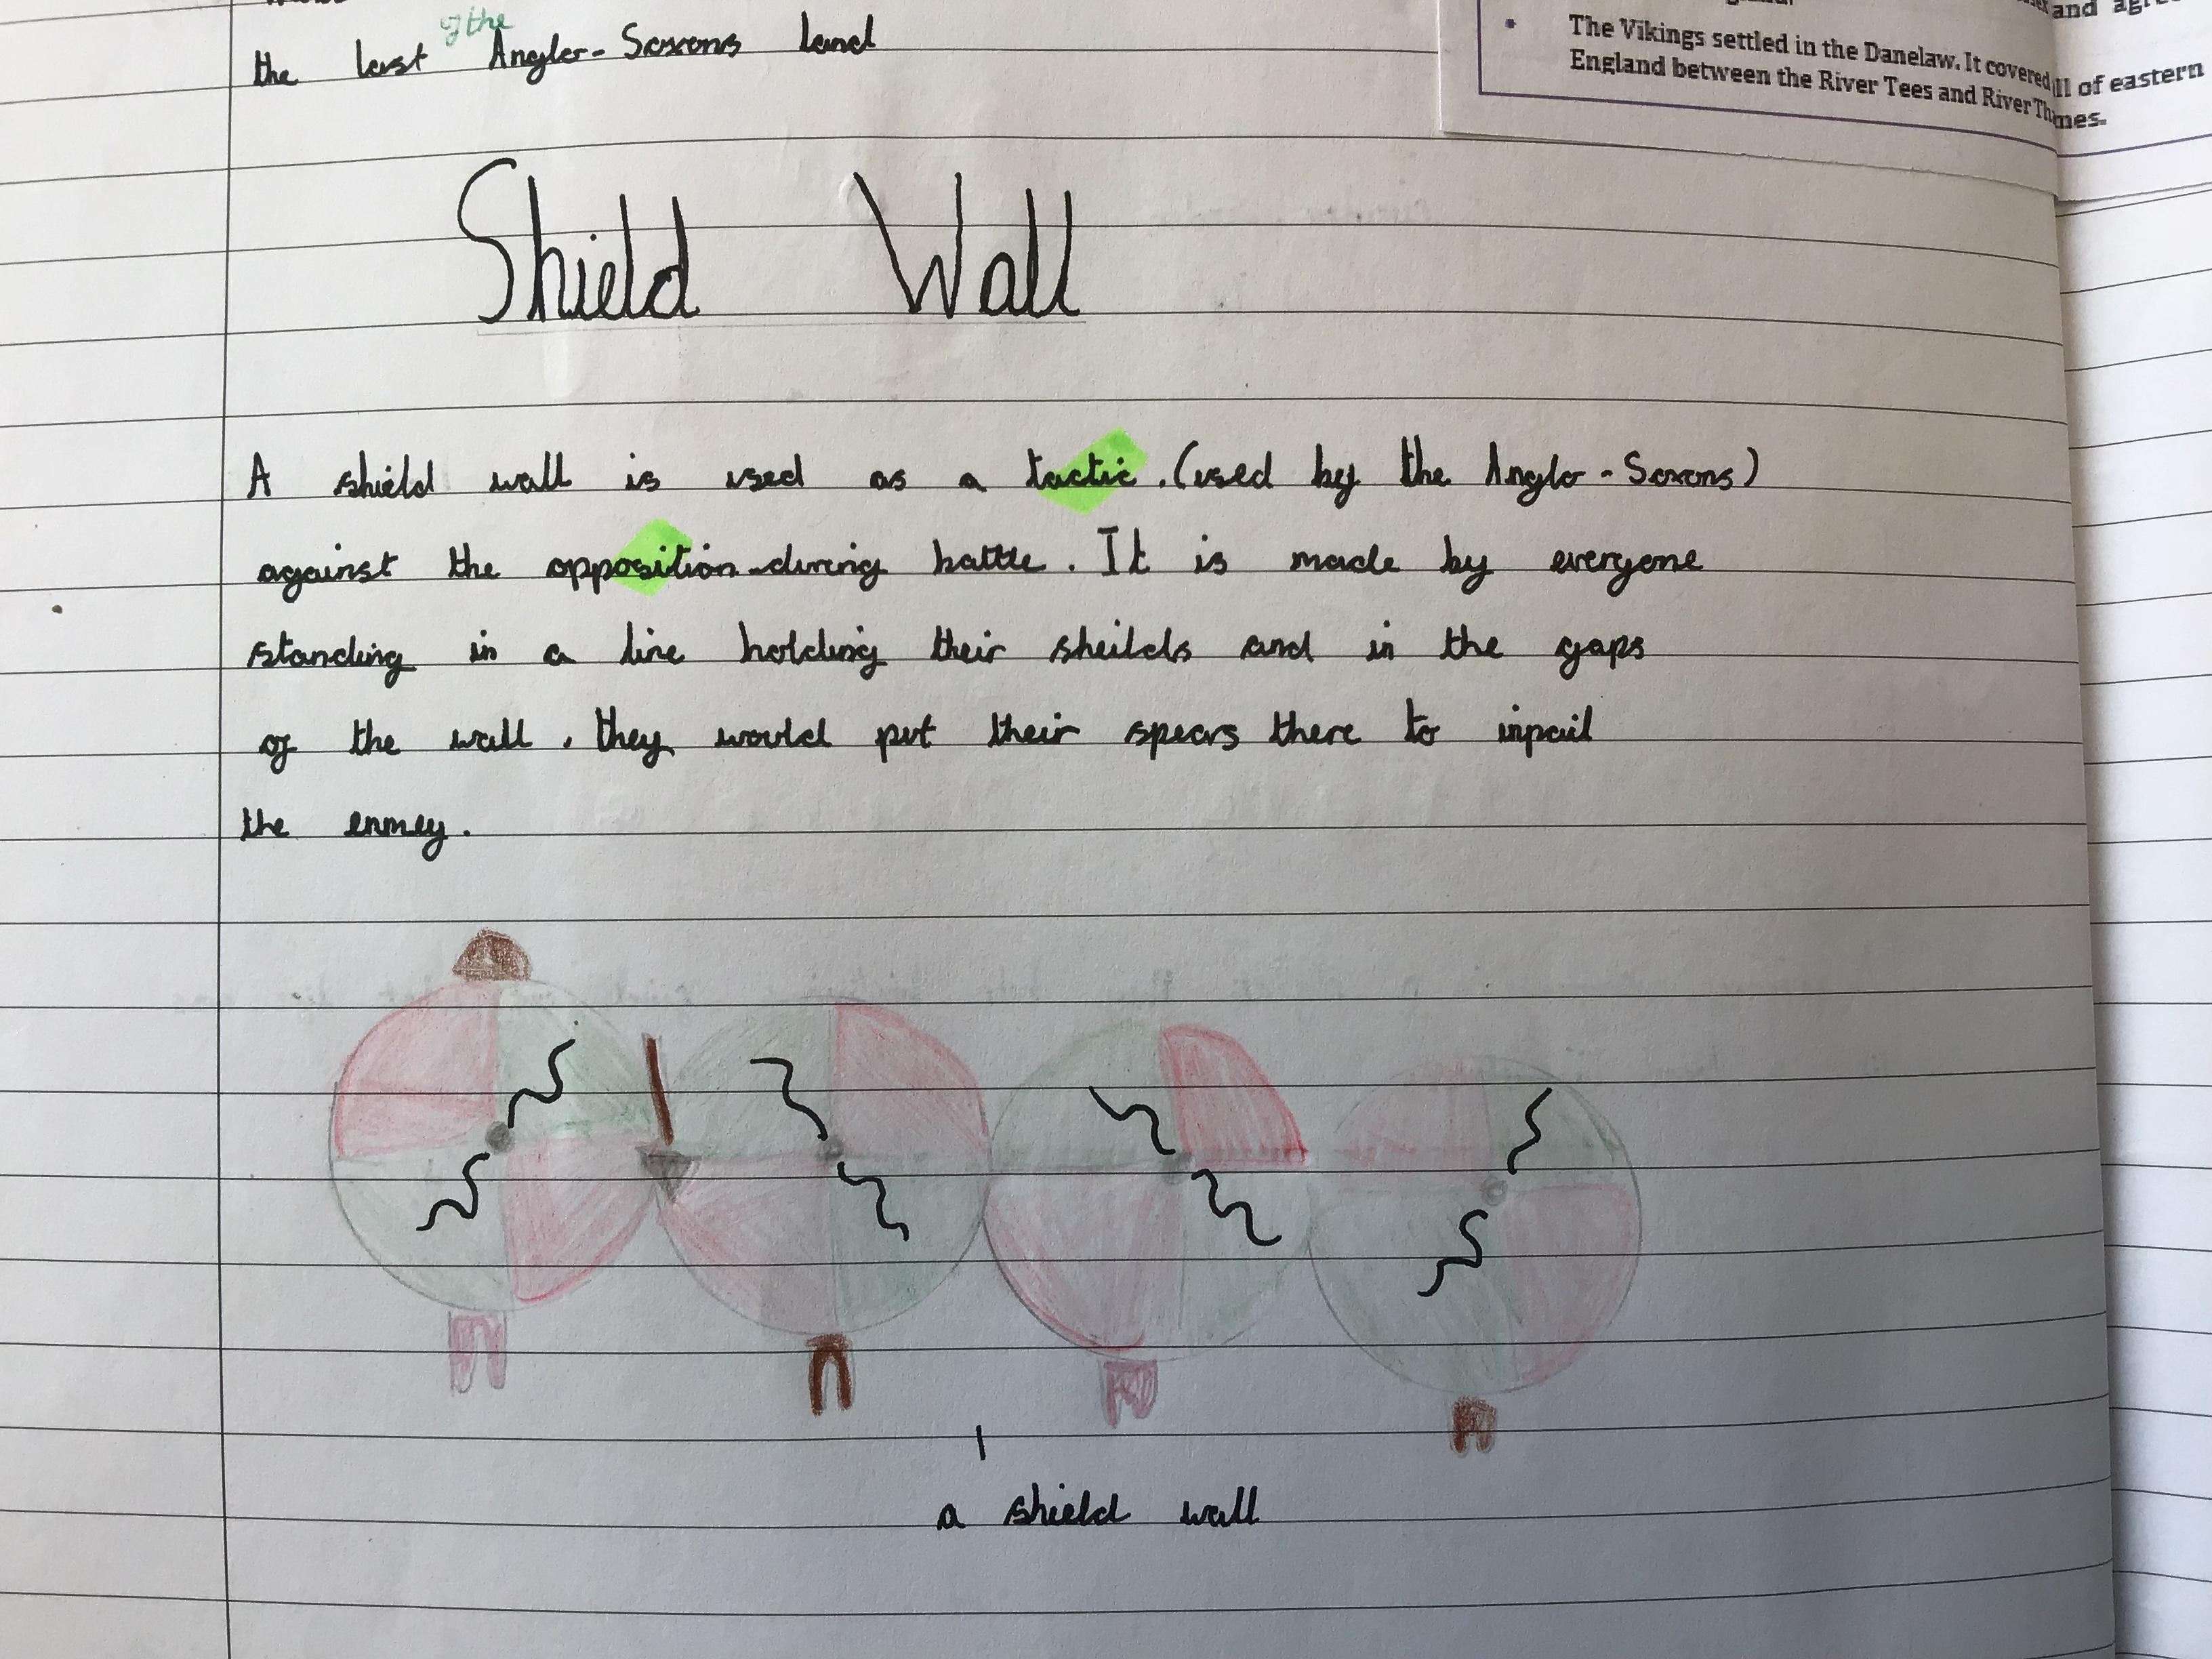 of the
the last Anglo-Saxons land
and
• The Vikings settled in the Danelaw. It covered all of eastern
England between the River Tees and River Thames.
Shield Wall
A shield wall is used as a tactic. (used by the Anglo-Saxons)
against the opposition during battle. It is made by everyone
standing in a line holding their sheilds and in the gaps
of the wall, they would put their spears there to inpail
the enmey.
a shield wall